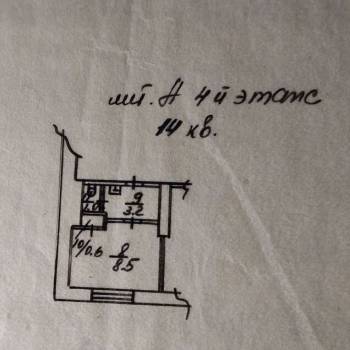 лит. А 4й этаж
14 кв.
9
3.2
10/0.6
8
8.5